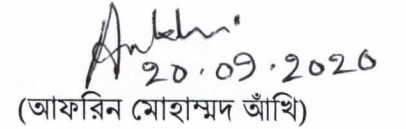 Ankhi
20.09.2020
(আফরিন মোহাম্মদ আঁখি)